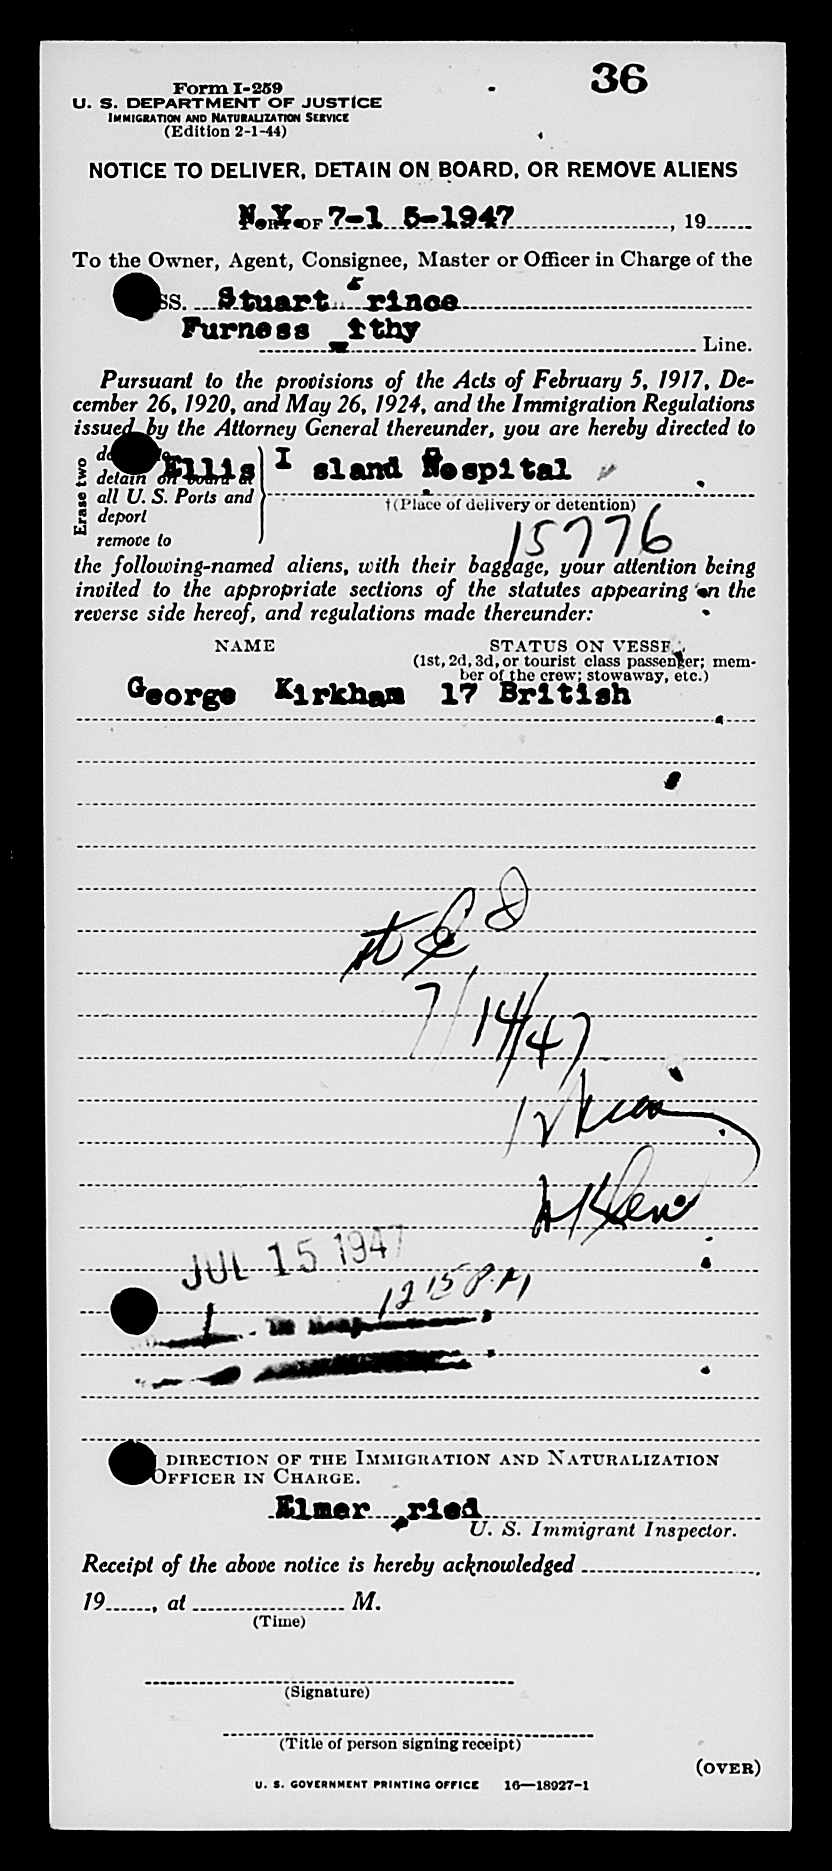 36
Form I-259
U. S. DEPARTMENT OF JUSTICE
IMMIGRATION AND NATURALIZATION SERVICE
(Edition 2-1-44)
NOTICE TO DELIVER, DETAIN ON BOARD, OR REMOVE ALIENS
N.Y. OF 7-1 5-1947, 19
To the Owner, Agent, Consignee, Master or Officer in Charge of the
SS. Stuart rince
Furness ithy
Line.
Pursuant to the provisions of the Acts of February 5, 1917, De-
cember 26, 1920, and May 26, 1924, and the Immigration Regulations
issued by the Attorney General thereunder, you are hereby directed to
Erase two
Ellis I sland Hospital
detain on board at
all U. S. Ports and
†(Place of delivery or detention)
deport
remove to
15776
the following-named aliens, with their baggage, your attention being
invited to the appropriate sections of the statutes appearing on the
reverse side hereof, and regulations made thereunder:
NAME STATUS ON VESSEL
(1st, 2d, 3d, or tourist class passenger; mem-
ber of the crew; stowaway, etc.)
George Kirkham 17 British
7/14/47
JUL 15 1947
12 15 P.M
DIRECTION OF THE IMMIGRATION AND NATURALIZATION
OFFICER IN CHARGE.
Elmer ried
U. S. Immigrant Inspector.
Receipt of the above notice is hereby acknowledged
19, at M.
(Time)
(Signature)
(Title of person signing receipt)
(OVER)
U. S. GOVERNMENT PRINTING OFFICE 16—18927-1